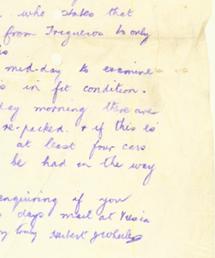 , who states that
from Tregueros to only
is
mid-day to examine
is in fit condition.
day morning there are
re-packed. & if this is
at least four cars
be had in the way
enquiring if you
days mail at